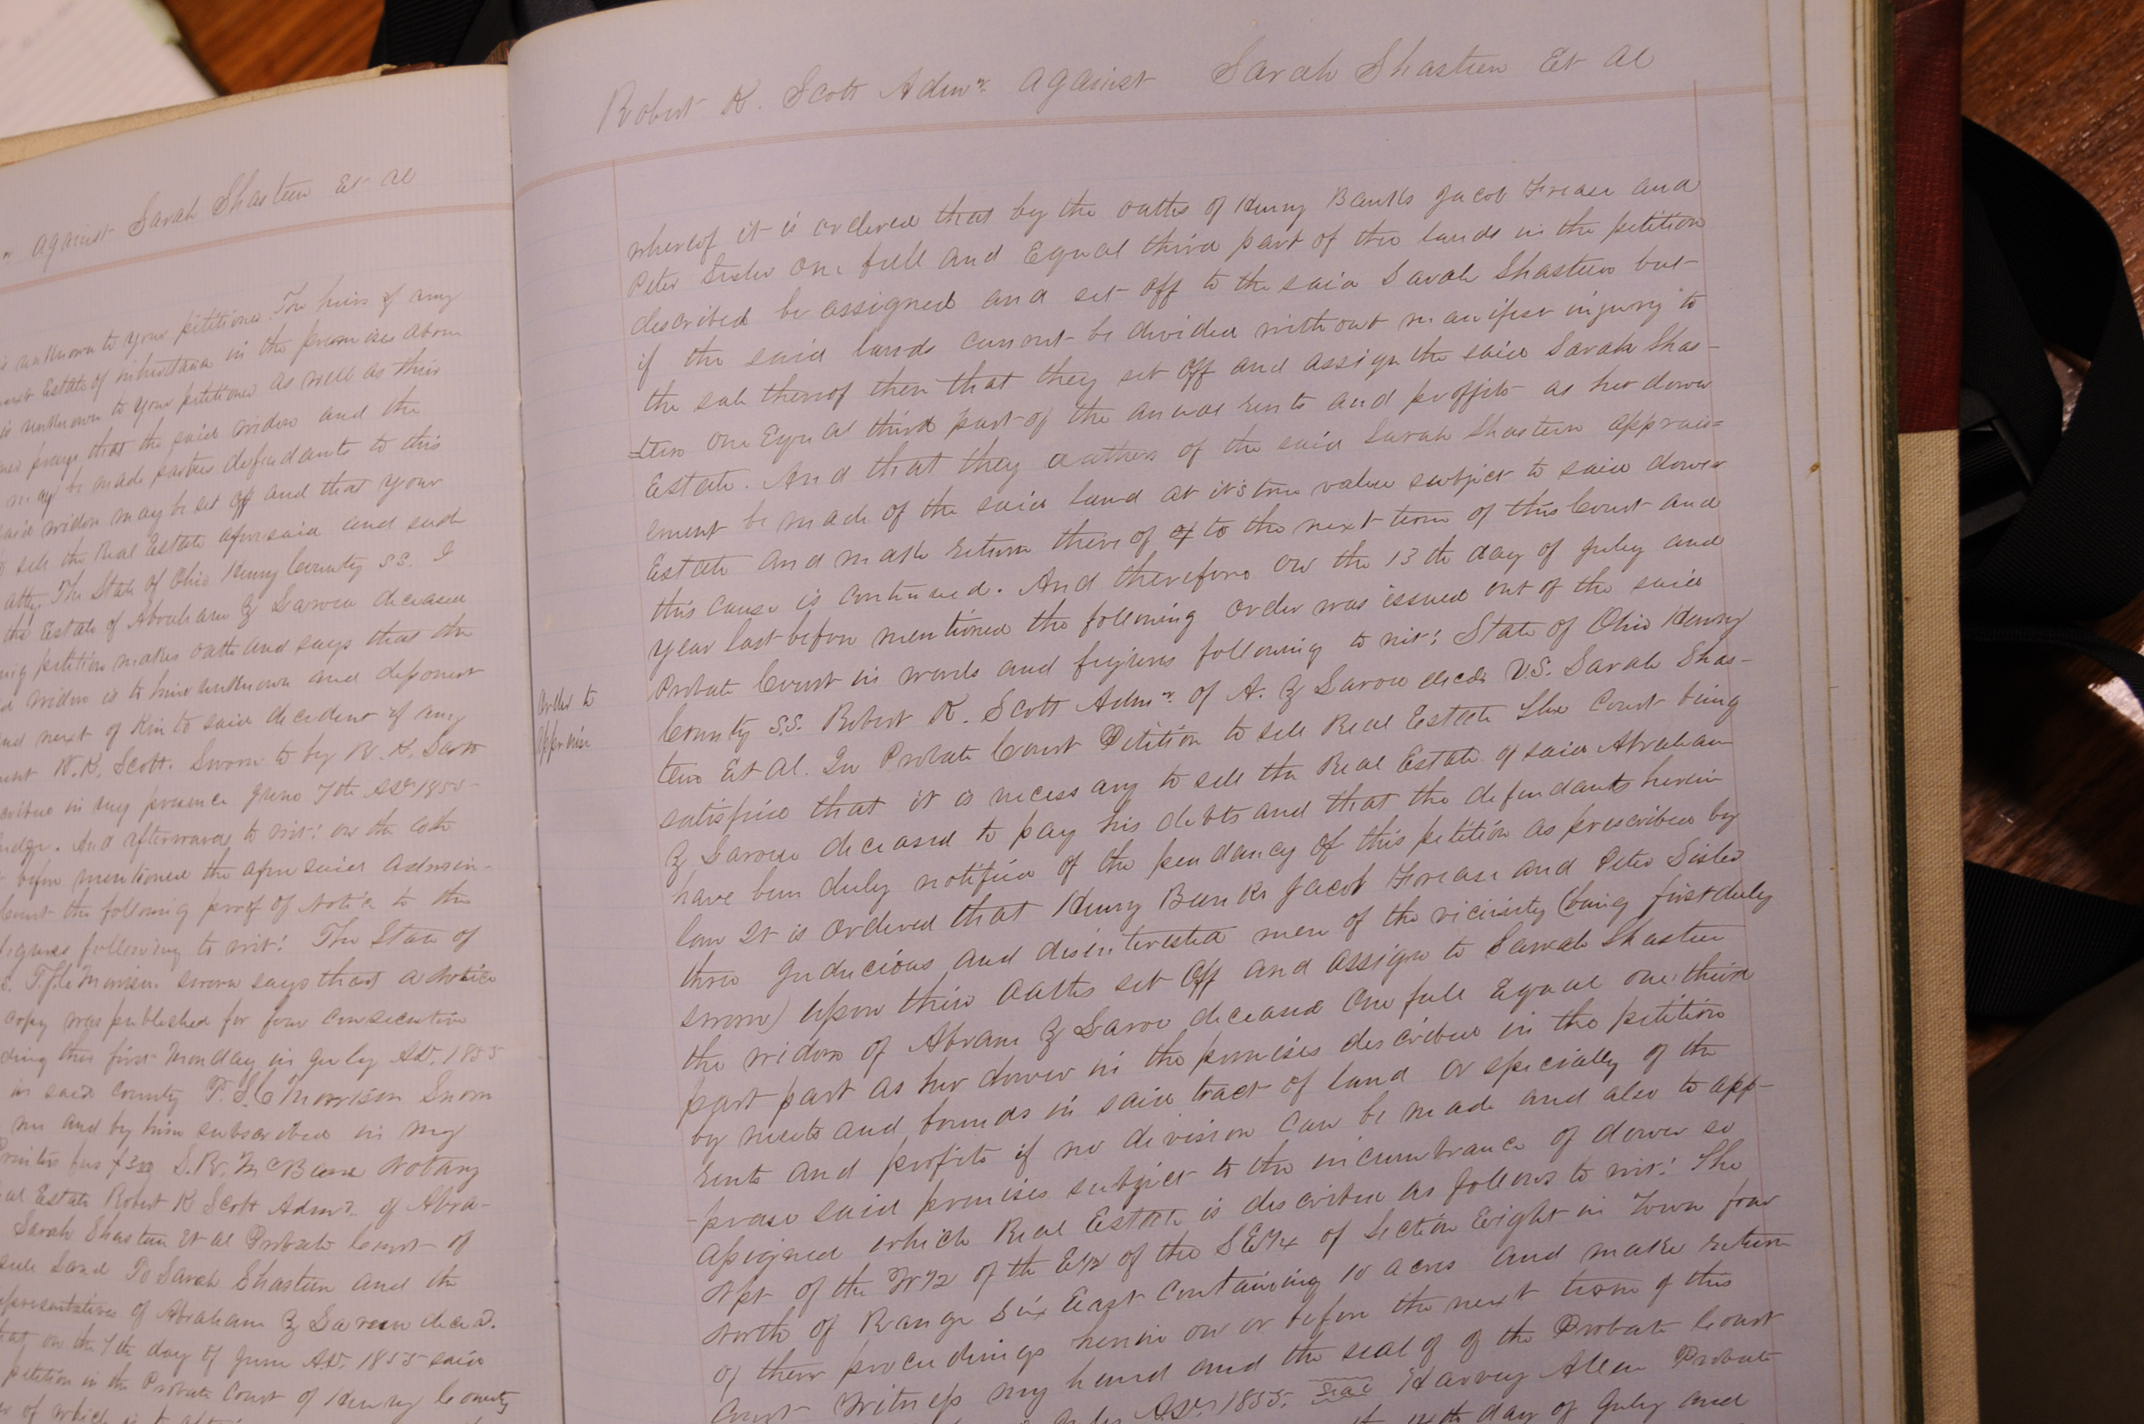 against Sarah Shasteen Et Al
is unknown to your petitioner. The heirs if any
next Estate of inheritance in the premises above
is unknown to your petitioner as well as their
prays that the said widow and the
may be made parties defendants to this
said widow may be set off and that your
sell the Real Estate aforesaid and such
atty. The State of Ohio Henry County S.S. I
the Estate of Abraham Z Larow deceased
petition makes oath and says that the
widow is to him unknown and deponent
and next of Kin to said decedent if any
R.K. Scott. Sworn to by R. K. Scott
in my presence June 7th AD 1855
And afterwards to wit: on the
before mentioned the afore said Admin-
Court the following proof of notice to the
figures following to wit: The State of
Morrison sworn says that a notice
copy was published for four consecutive
first Monday in July AD. 1855
in said County Morrison Sworn
me and by him subscribed in my
S.R. McBane Notary
Estate Robert K Scott Admr. of Abra-
Sarah Shasteen Et al Probate Court of
Land To Sarah Shasteen and the
representatives of Abraham Z Larow decd.
that on the 7th day of June AD. 1855 said
petition in the Probate Court of Henry County
Robert K. Scott Admr. against Sarah Shasteen Et Al
whereof it is ordered that by the oaths of Henry Banks Jacob Frease and
Peter Sisler one full and Equal third part of the lands in the petition
described be assigned and set off to the said Sarah Shasteen but
if the said lands cannot be divided without manifest injury to
the sale thereof then that they set off and assign the said Sarah Shas-
teen one Equal third part of the anual rents and proffits as her dower
Estate. And that they of the said Sarah Shasteen apprais=
ement be made of the said land at it's true value subject to said dower
Estate and make return there of to the next term of this Court and
this cause is continued. And therefore on the 13th day of July and
year last before mentioned the following order was issued out of the said
Order to
Appraise
Probate Court in words and figures following to wit: State of Ohio Henry
County S.S. Robert K. Scott Admr. of A. Z Larow decd. V.S. Sarah Shas-
teen Et Al. In Probate Court Petition to sell Real Estate The Court being
satisfied that it is necessary to sell the Real Estate of said Abraham
Z Larow deceased to pay his debts and that the defendants herein
have been duly notified of the pendancy of this petition as prescribed by
law It is ordered that Henry Banks Jacob Frease and Peter Sisler
three Juducious and disinterested men of the vicinity (being first duly
sworn) upon their oaths set off and assign to Sarah Shasteen
the widow of Abram Z Larow deceased one full Equal one third
part part as her dower in the premises described in the petition
by meets and bounds in said tract of land or specially of the
rents and profits if no division can be made and also to app-
praise said premises subject to the incumbrance of dower so
assigned which Real Estate is described as follows to wit: The
of the W1/2 of the E1/2 of the SE1/4 of Section Eight in Town four
North of Range six East containing 10 acres and make return
of their proceedings herein on or before the next term of this
Court Witness my hand and the seal of of the Probate Court
July AD. 1855. Seal Harvey Allen Probate
14th day of July and